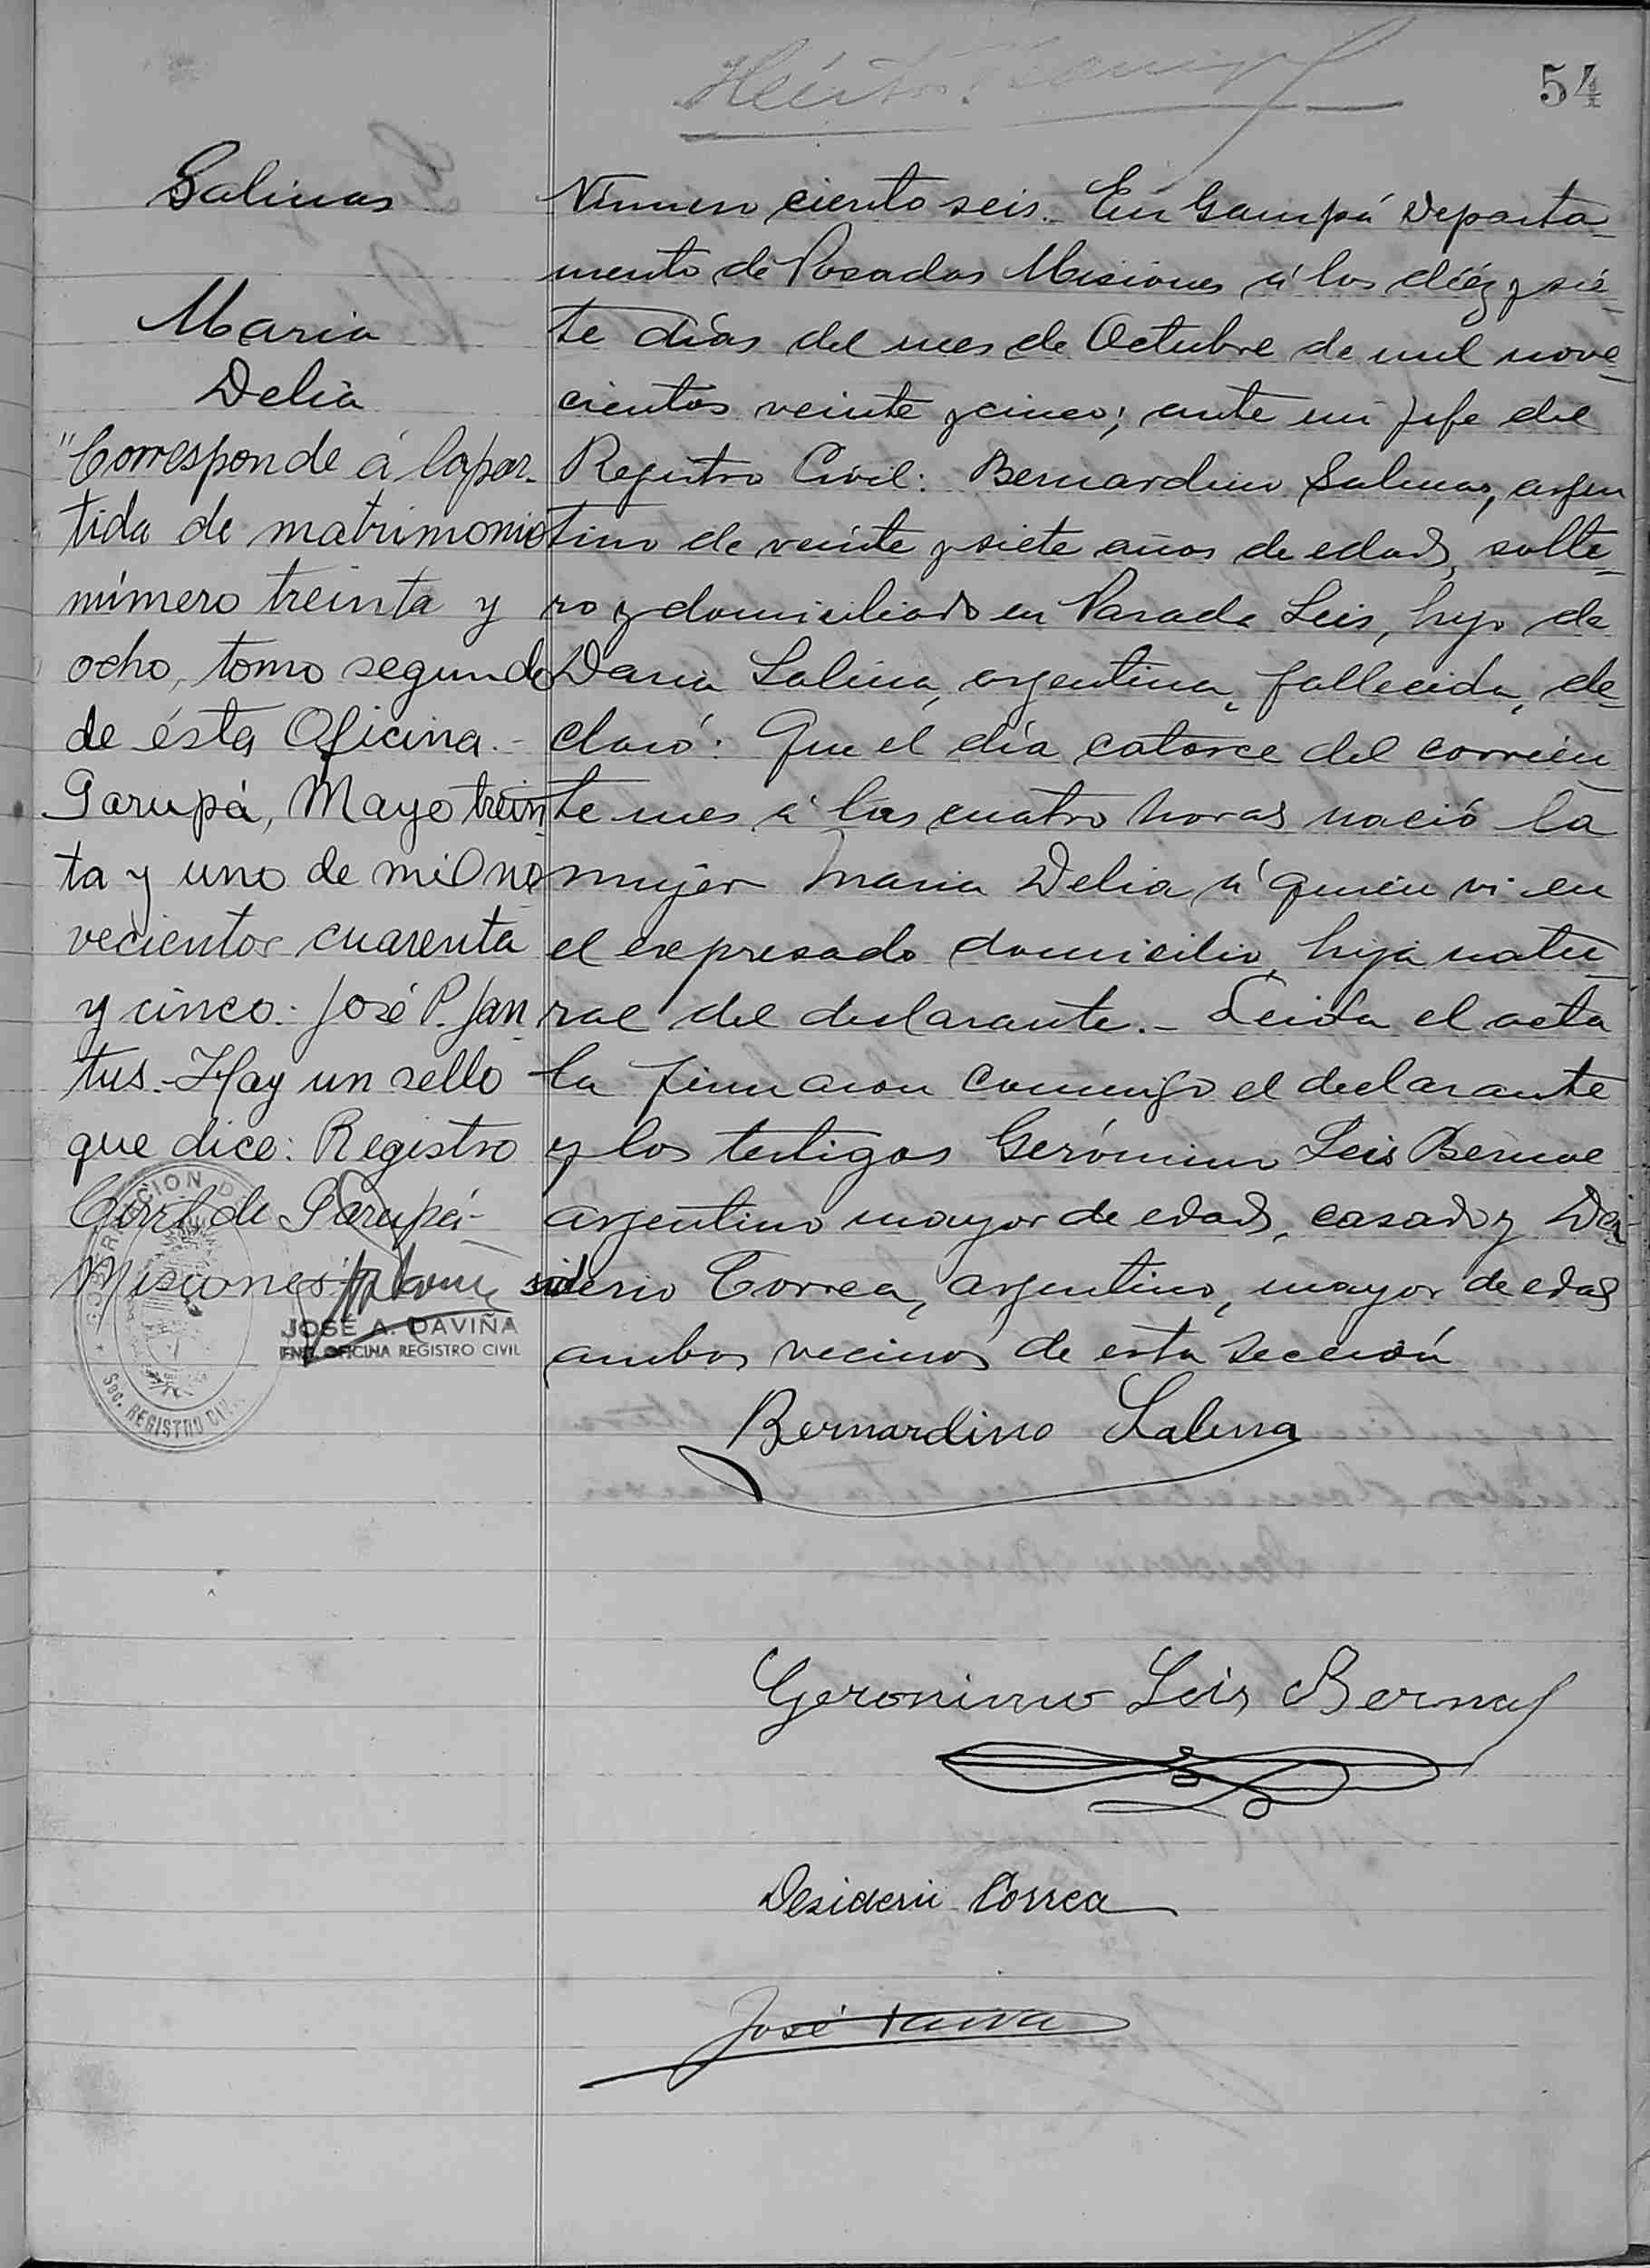 54
Salinas
Maria
Delia
"Corresponde á la par-
tida de matrimonio
número treinta y
ocho, tomo segundo
de ésta Oficina.-
Garupá, Mayo trein-
ta y uno de mil no
vecientos cuarenta
y cinco.- José P. Jan
tus.- Hay un sello
que dice: Registro
Civil de Garupá-
Misiones
JOSÉ A. DAVIÑA
OFICINA REGISTRO CIVIL
GOBERNACION DE
Sec. REGISTRO CIVIL
Número ciento seis.- En Garupá Departa-
mento de Posadas Misiones á los diez y sie-
te días del mes de Octubre de mil nove-
cientos veinte y cinco; ante mi Jefe del
Registro Civil: Bernardino Salinas, argen
tino de veinte y siete años de edad, solte-
ro y domiciliado en Parada Leis, hijo de
Daria Salina, argentina, fallecida, de-
claró: Que el día catorce del corrien
te mes á las cuatro horas nació la
mujer Maria Delia á quien vi en
el expresado domicilio, hija natu-
ral del declarante.- Leida el acta
la firmaron conmigo el declarante
y los testigos Gerónimo Leis Bernal
argentino mayor de edad, casado y De-
siderio Correa, argentino, mayor de edad
ambos vecinos de esta Sección
Bernardino Salina
Geronimo Leis Bernal
Desiderio Correa
José